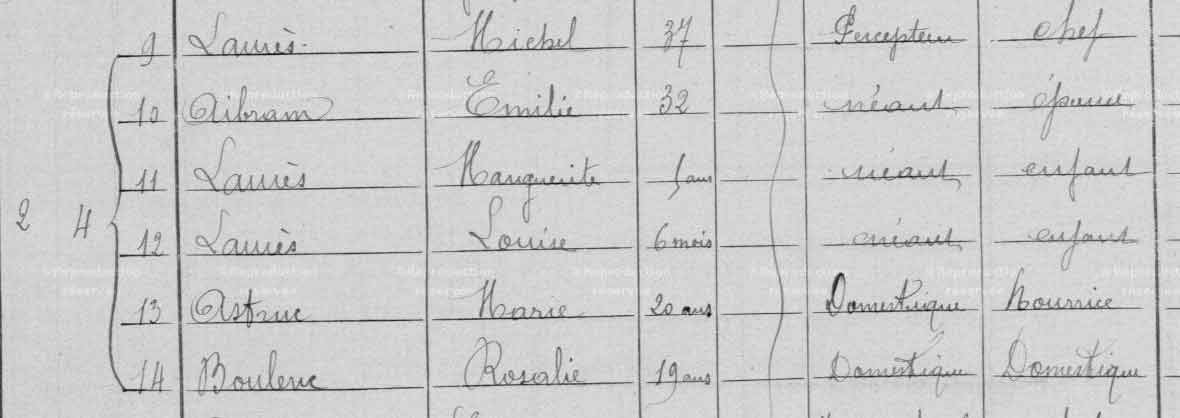 9 Laurès Michel 37 Percepteur chef
10 Aibram Emilie 32 néant épouse
11 Laurès Marguerite 5 ans néant enfant
2 4 12 Laurès Louise 6 mois néant enfant
13 Astruc Marie 20 ans Domestique Nourrice
14 Boulenc Rosalie 19 ans Domestique Domestique
©Reproduction réservée